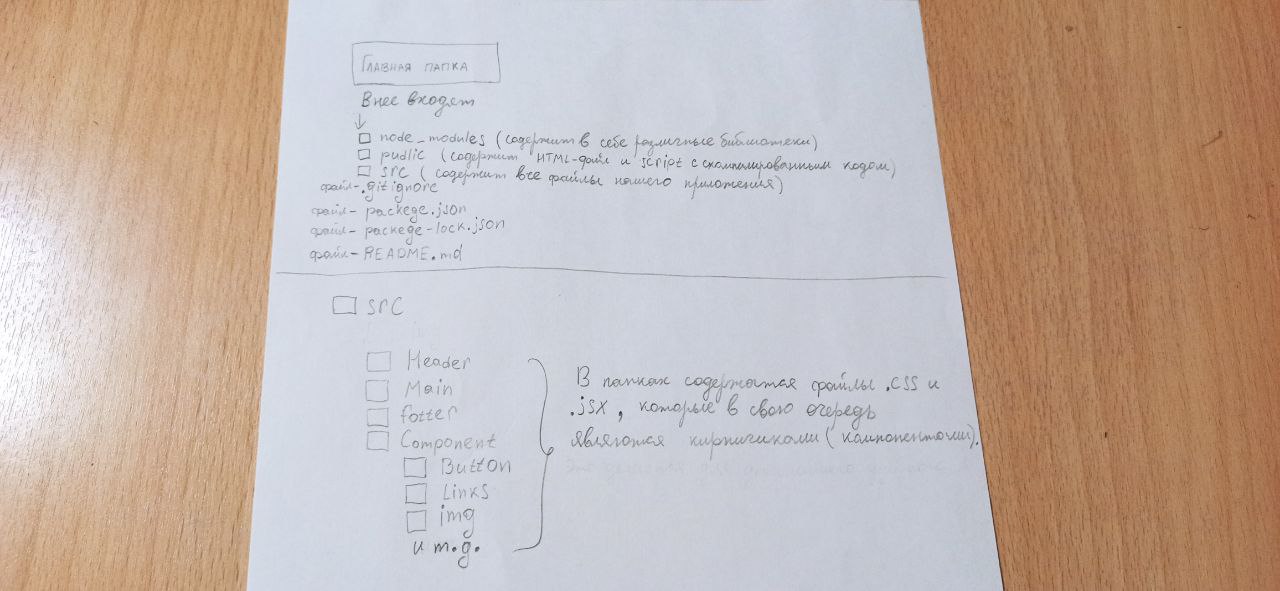 Главная папка
Внее входят
node_modules (содержит в себе различные библиотеки)
public (содержит HTML-файл и script с скомпилированным кодом)
src (содержит все файлы нашего приложения)
файл-.gitignore
файл- packege.json
файл- packege-lock.json
файл- README.md
src
Header
Main
fotter
Component
Button
Links
img
и т.д.
В папках содержатся файлы .css и
.jsx, которые в свою очередь
являются кирпичиками (компонентами).